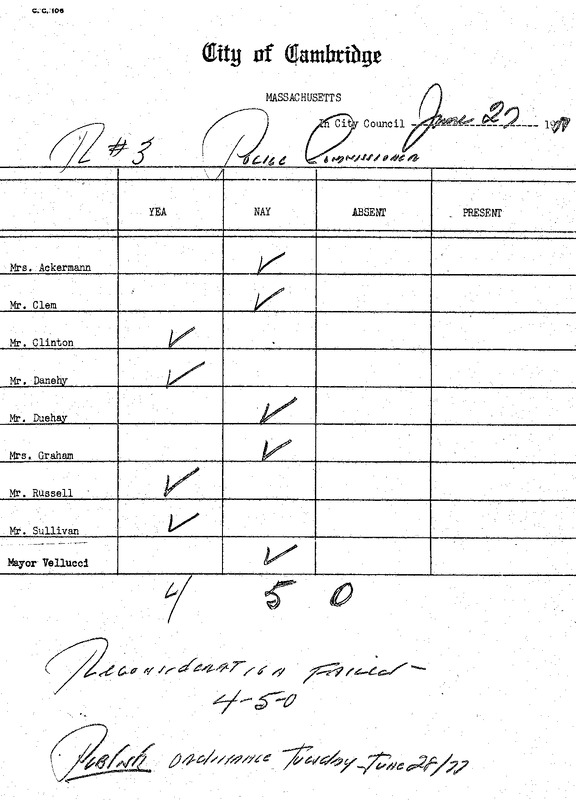 C.C. 106
City of Cambridge
MASSACHUSETTS
In City Council June 27 1977
R #3 Police Commissioner
YEA NAY ABSENT PRESENT
Mrs. Ackermann ✓
Mr. Clem ✓
Mr. Clinton ✓
Mr. Danehy ✓
Mr. Duehay ✓
Mrs. Graham ✓
Mr. Russell ✓
Mr. Sullivan ✓
Mayor Vellucci ✓
4 5 0
Reconsideration Failed-
4-5-0
Publish ordinance Tuesday June 28/77